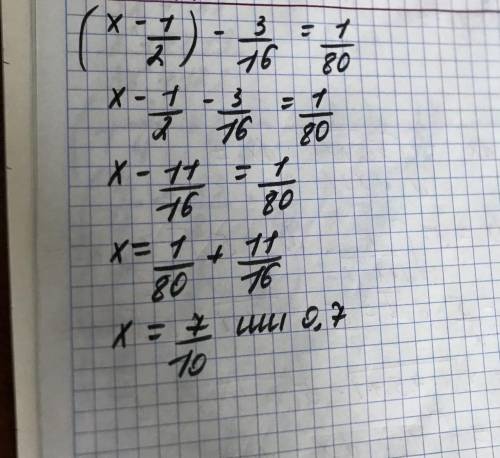 (x - 1/2) - 3/16 = 1/80
x - 1/2 - 3/16 = 1/80
x - 11/16 = 1/80
x = 1/80 + 11/16
x = 7/10 или 0,7